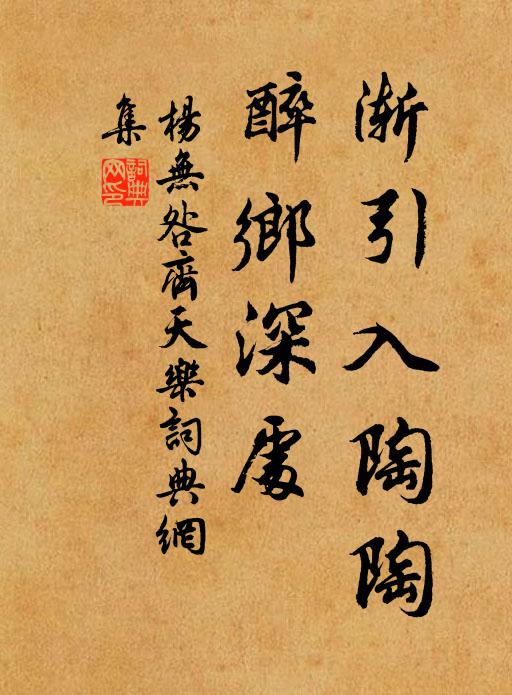 漸引入陶陶
醉鄉深處
楊無咎齊天樂詞典網
集
詞典
网印